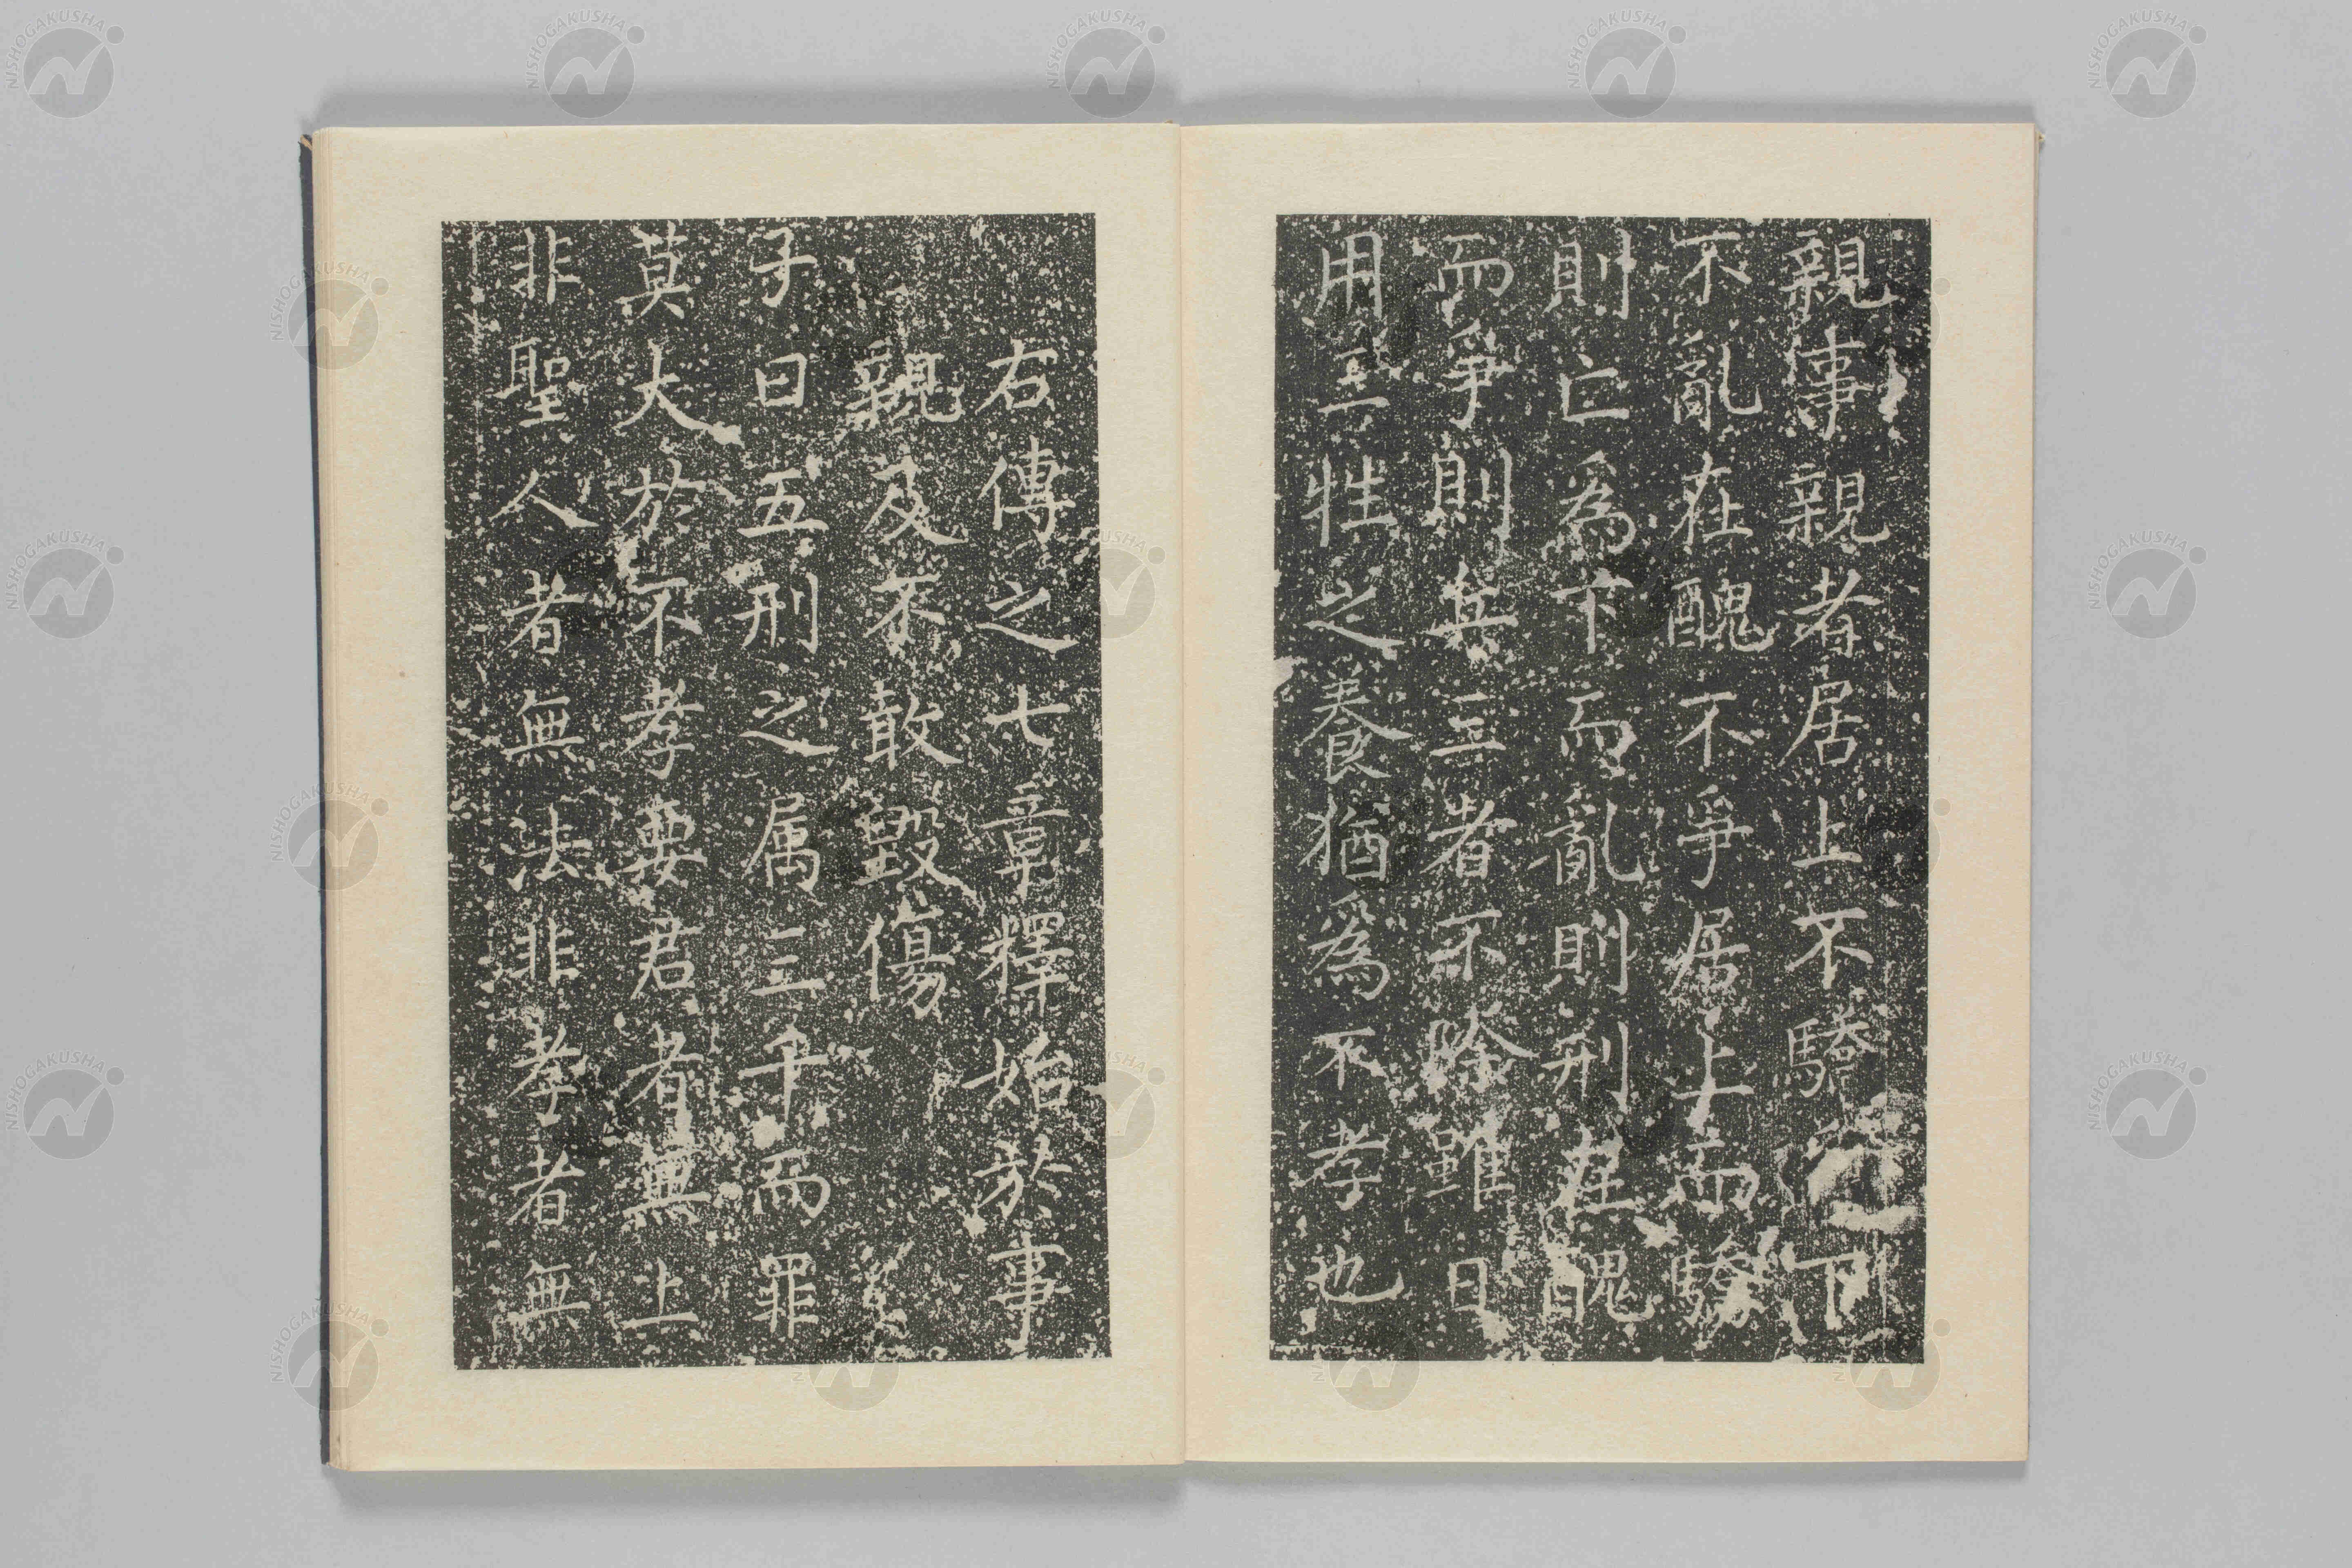 親事親者居上不驕下
不亂在醜不爭居上而驕
則亡為下而亂則刑在醜
而爭則兵三者不除雖日
用三牲之養猶為不孝也
右傳之七章釋始於事
親及不敢毀傷
子曰五刑之属三千而罪
莫大於不孝要君者無上
非聖人者無法非孝者無
NISHOGAKUSHA